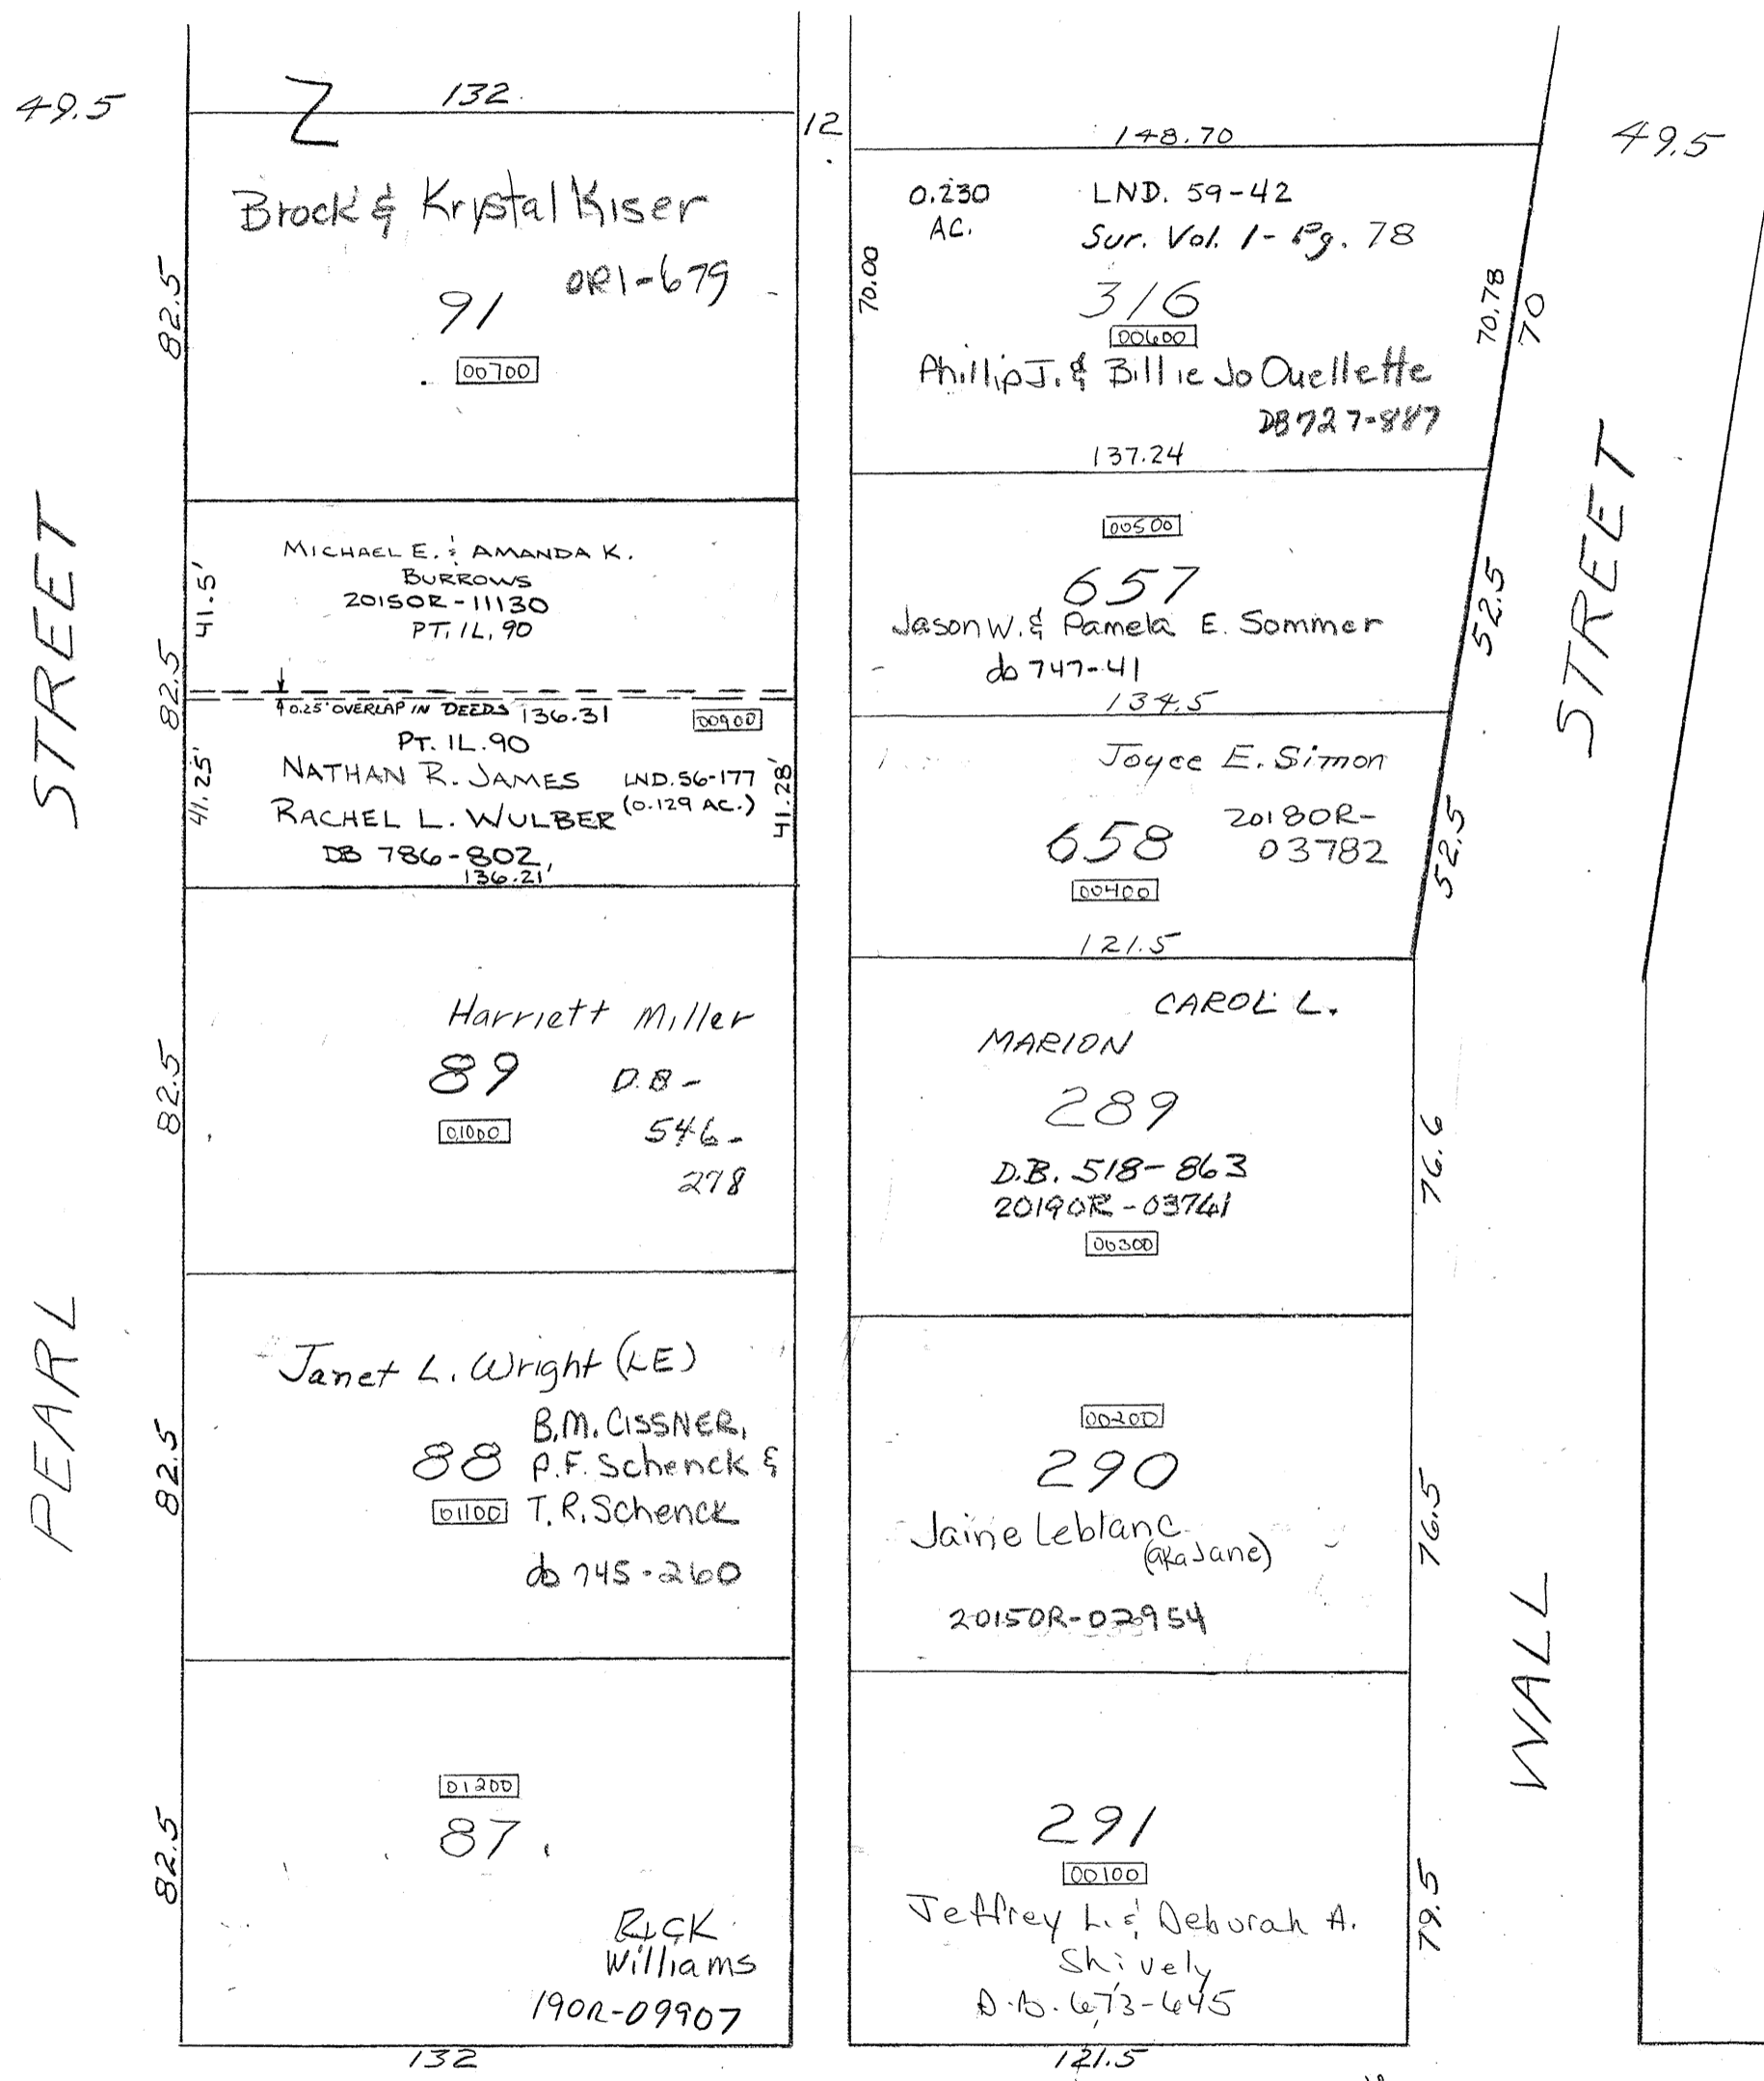 49.5
Z
132
12
Brock & Krystal Kiser
OR1-679
91
00700
82.5
MICHAEL E. & AMANDA K.
BURROWS
2015OR-11130
PT. IL. 90
41.5'
82.5
0.25' OVERLAP IN DEEDS 136.31
00900
PT. IL. 90
NATHAN R. JAMES
LND. 56-177
(0.129 AC.)
RACHEL L. WULBER
DB 786-802,
136.21'
41.25'
41.28'
Harriett Miller
89
D.B-
01000
546-
278
82.5
Janet L. Wright (LE)
B.M. CISSNER,
88
P.F. Schenck &
01100
T.R. Schenck
db 745-260
82.5
01200
87
Rick
Williams
19OR-09907
82.5
132
PEARL STREET
148.70
49.5
0.230
AC.
LND. 59-42
Sur. Vol. 1-Pg. 78
316
00600
Phillip J. & Billie Jo Ouellette
DB 727-887
70.00
70.78
70
137.24
00500
657
Jason W. & Pamela E. Sommer
db 747-41
134.5
52.5
Joyce E. Simon
658
2018OR-
03782
00400
121.5
52.5
CAROL L.
MARION
289
D.B. 518-863
2019OR-03741
00300
76.6
00200
290
Jaine Leblanc
(aka Jane)
2015OR-02954
76.5
291
00100
Jeffrey L. & Deborah A.
Shively
D.B. 673-645
79.5
121.5
WALL STREET